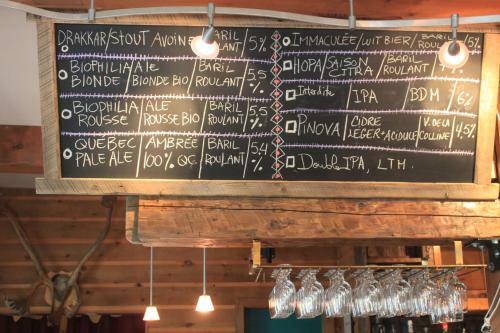 DRAKKAR/STOUT AVOINE/BARIL ROULANT/5%
BIOPHILIA BLONDE/ALE BLONDE BIO/BARIL ROULANT/5,5%
BIOPHILIA ROUSSE/ALE ROUSSE BIO/BARIL ROULANT/5,5%
QUÉBEC PALE ALE/AMBRÉE 100% QC/BARIL ROULANT/5,4%
IMMACULÉE/WITBIER/BARIL ROULANT
HOPA/SAISON CITRA/BARIL ROULANT
Interdite/IPA/BDM/6%
PINOVA/CIDRE LÉGER+ACIDULÉ/V. DE LA COLLINE/4,5%
Double IPA, LTM.